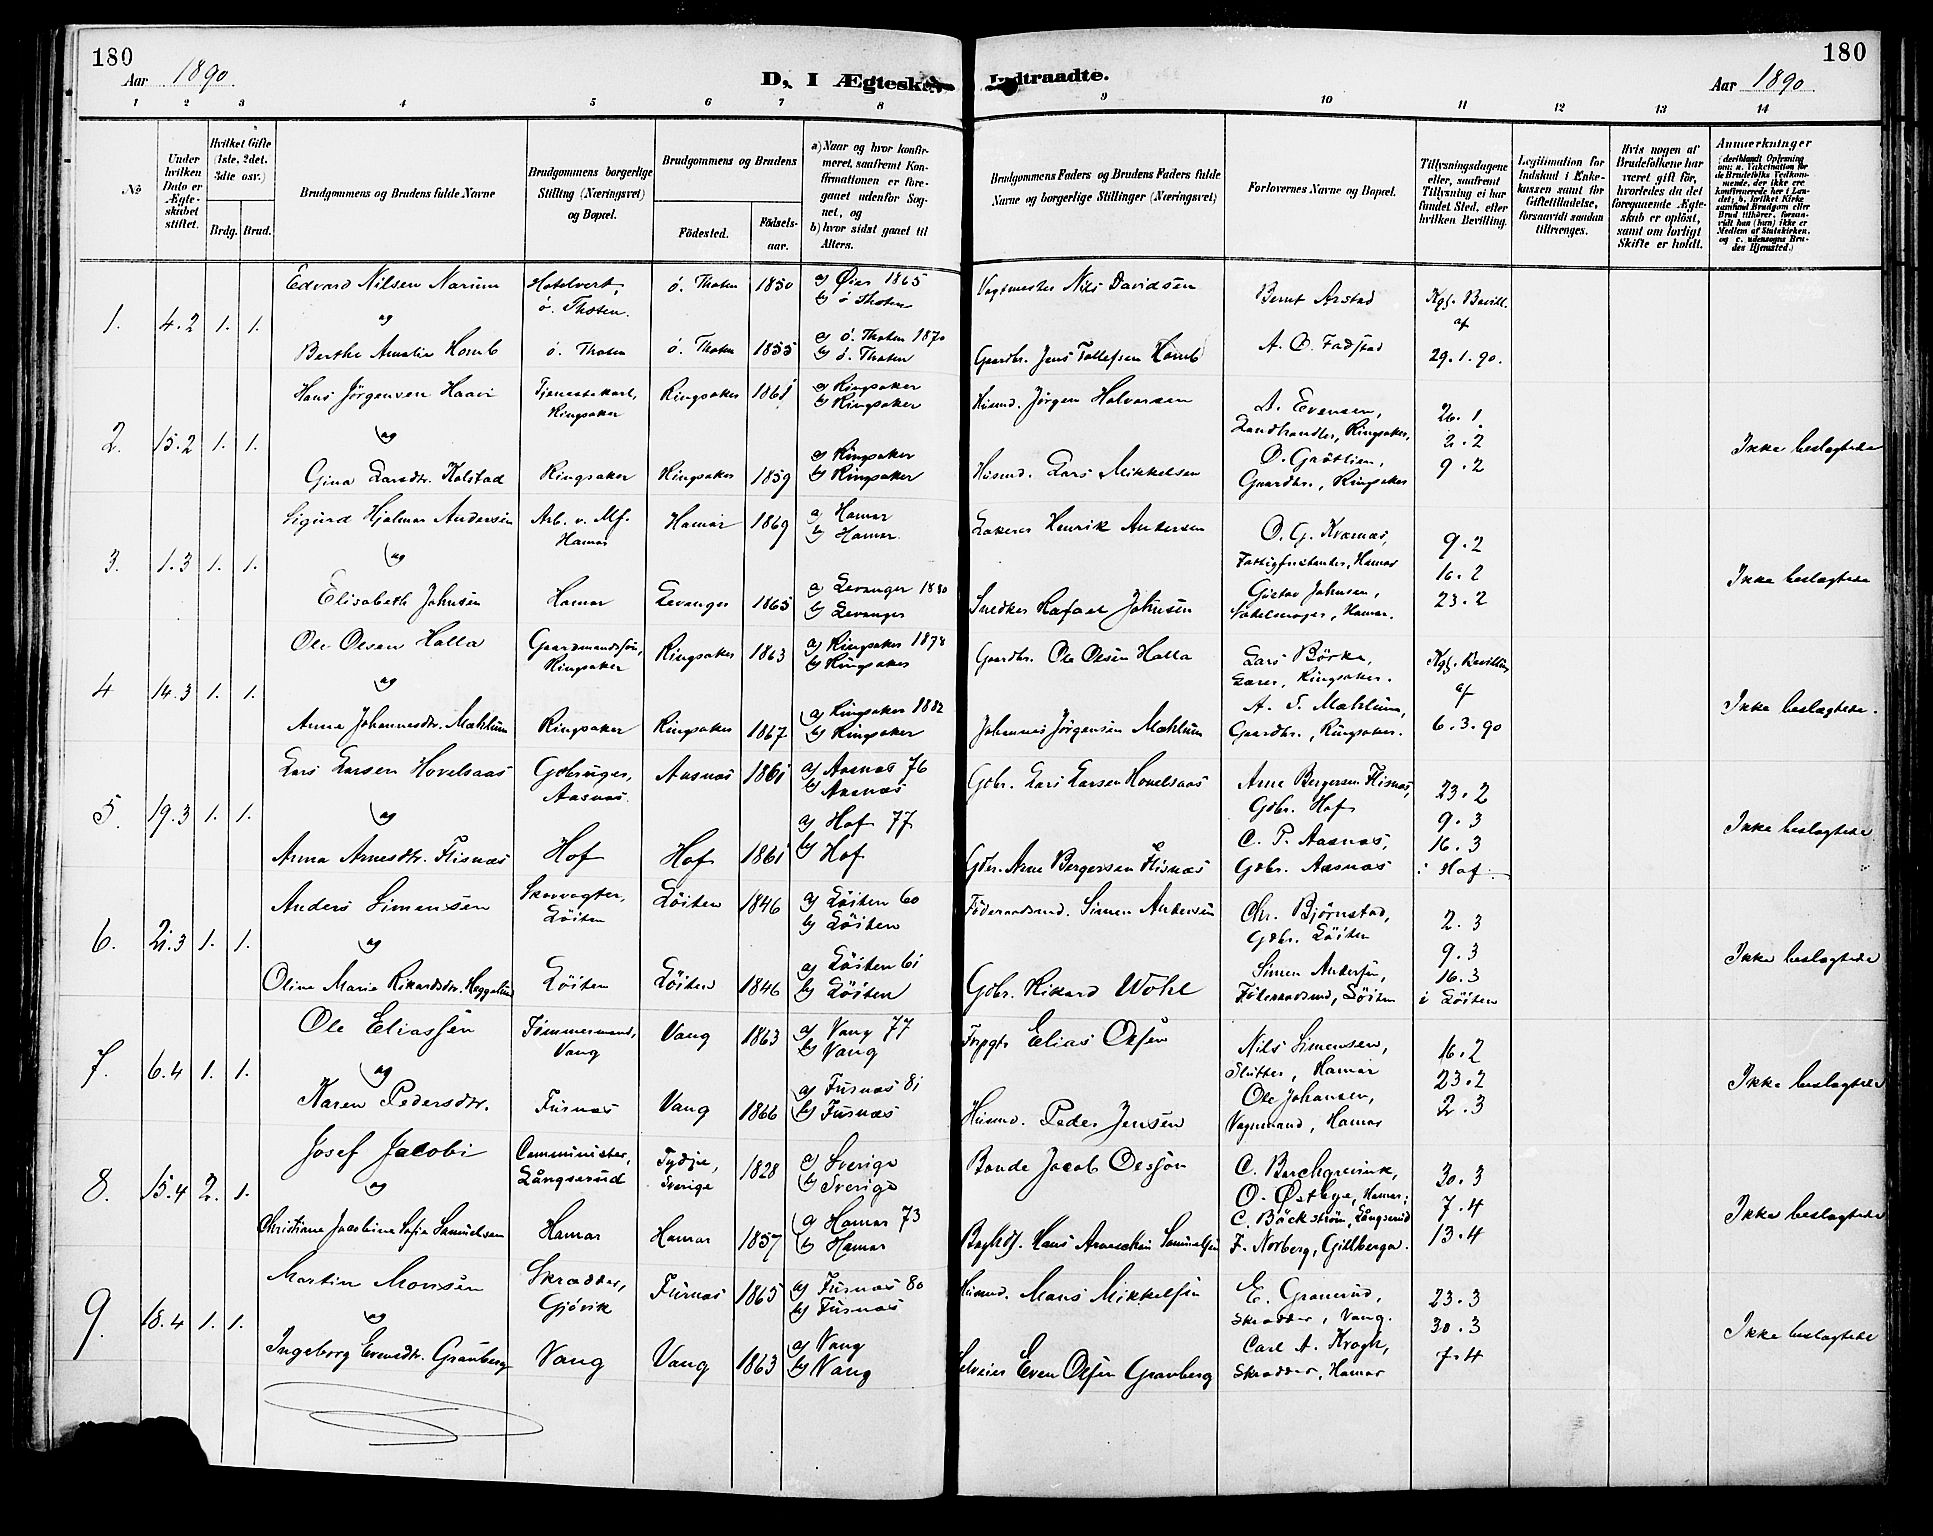 180
Aar 1890.
D, I Ægteskab Indtraadte.
Aar 1890.
180
1 2 3 4 5 6 7 8 9 10 11 12 13 14
No
Under hvilken Dato er Ægteskabet stiftet.
Hvilket Gifte (1ste, 2det, 3die osv.)
Brdg. Brud.
Brudgommens og Brudens fulde Navne
Brudgommens borgerlige Stilling (Næringsvei) og Bopæl.
Brudgommens og Brudens
Fødested.
Fødselsaar.
a) Naar og hvor konfirmeret, saafremt Konfirmationen er foregaaet udenfor Sognet, og
b) hvor sidst gaaet til Alters.
Brudgommens Faders og Brudens Faders fulde Navne og borgerlige Stillinger (Næringsvei)
Forlovernes Navne og Bopæl.
Tillysningsdagene eller, saafremt Tillysning ei har fundet Sted, efter hvilken Bevilling.
Legitimation for Indskud i Enkekassen samt for Giftetilladelse, forsaavidt saadan tiltrænges.
Hvis nogen af Brudefolkene har været gift før, hvorledes da det foregaaende Ægteskab er opløst, samt om lovligt Skifte er holdt.
Anmærkninger
1. 4.2 1. 1.
Edvard Nilsen Narum Hotelvert, ø. Thoten. ø. Thoten 1850 a) Øier 1865 b) ø Thoten Vagtmester Nils Davidsen Bernt Arstad Kgl. Bevill.
og af
Berthe Amalie Homb ø. Thoten ø. Thoten 1855 a) ø. Thoten 1870 b) ø. Thoten Gaardbr. Jens Tollefsen Homb A. O. Fadstad 29.1.90.
2. 15.2 1. 1.
Hans Jørgensen Haavi Tjenestekarl, Ringsaker Ringsaker 1861 a) Ringsaker b) Ringsaker Husmd. Jørgen Halvorsen D. Evensen, Landhandler, Ringsaker, 26.1.
og 2.2 Ikke beslægtede
Gina Larsdtr. Kolstad Ringsaker Ringsaker 1859 a) Ringsaker b) Ringsaker Husmd. Lars Mikkelsen Gaardbr., Ringsaker 9.2
3. 1.3 1. 1.
Sigurd Hjalmar Andersen Arb. v. Mf. Hamar Hamar 1869 a) Hamar b) Hamar. Henrik Andersen O. G. Kvæmes, Hamar 9.2
og 16.2 Ikke beslægtede
Elisabeth Johnsen Hamar Levanger 1865 a) Levanger 1880 b) Levanger Snedker Rafael Johnsen Gustav Johnsen, Sadelmager, Hamar. 23.2
4 14.3 1. 1.
Ole Olsen Halla Gaardmandssøn, Ringsaker Ringsaker 1863 a) Ringsaker 1878 b) Ringsaker Gaardbr. Ole Olsen Halla Lars Børke, Lærer, Ringsaker. Kgl. Bevilling
og af Ikke beslægtede.
Anna Johannesdtr. Mæhlum Ringsaker Ringsaker 1867 a) Ringsaker 1882 b) Ringsaker Johannes Jørgensen Mæhlum A. T. Mæhlum, Gaardbr., Ringsaker. 6.3.90
5. 19.3 1. 1.
Lars Larsen Hovelsaas Gdbruger, Aasnæs. Aasnæs 1861 a) Aasnæs 76 b) Aasnæs Gdbr. Lars Larsen Hovelsaas Arne Bergersen Flisnæs, Gdbr. Hof 23.2 9.3
og Ikke beslægtede
Anna Arnesdtr. Flisnæs Hof Hof 1861 a) Hof 77 b) Hof Gdbr. Arne Bergersen Flisnæs C. P. Aasnæs, Gdbr. Aasnæs 16.3 i Hof.
6. 21.3 1. 1.
Anders Simensen Skovvogter, Løiten Løiten 1846 a) Løiten 60 b) Løiten Føderaadsmd. Simen Andersen Chr. Bjørnstad, Gdbr. Løiten 2.3 9.3
og Ikke beslægtede
Oline Marie Rikardsdtr. Heggelund Løiten Løiten 1846 a) Løiten 61 b) Løiten Gdbr. Rikard Wöhl Simen Andersen, Føderaadsmd, Løiten 16.3 i Løiten
7. 6.4 1. 1.
Ole Eliassen Tømmermand, Vang Vang 1863 a) Vang 77 b) Vang Elias Olsen Nils Simensen, Slutter, Hamar 16.2
og 23.2 Ikke beslægtede
Karen Pedersdtr. Furnæs Vang 1866 a) Furnæs 81 b) Furnæs Husmd. Peder Jensen Ole Johansen, Vognmand, Hamar 2.3
8. 15.4 2. 1.
Josef Jacobi Comminister, Långserud Tydje, Sverige 1828 a) Sverige b) Sverige Bonde Jacob Olsson C. Borchgrevink, O. Østbye, Hamar; 30.3
og 7.4 Ikke beslægtede
Christiane Jacobine Sofie Samuelsen Hamar Hamar 1857 a) Hamar 73 b) Hamar Hans Samuelsen C. Bäckström, Långserud F. Norberg, Gillberga. 13.4
9. 18.4 1. 1.
Martin Monsen Skrædder, Gjøvik Furnæs 1865 a) Furnæs 80 b) Furnæs Husmd. Mons Mikkelsen E. Granerud, Skrædder, Vang. 23.3
og 30.3 Ikke beslægtede
Ingeborg Evensdtr. Granberg Vang Vang 1863 a) Vang b) Vang Selveier Even Olsen Granberg Carl A. Krogh, Skrædder, Hamar 7.4